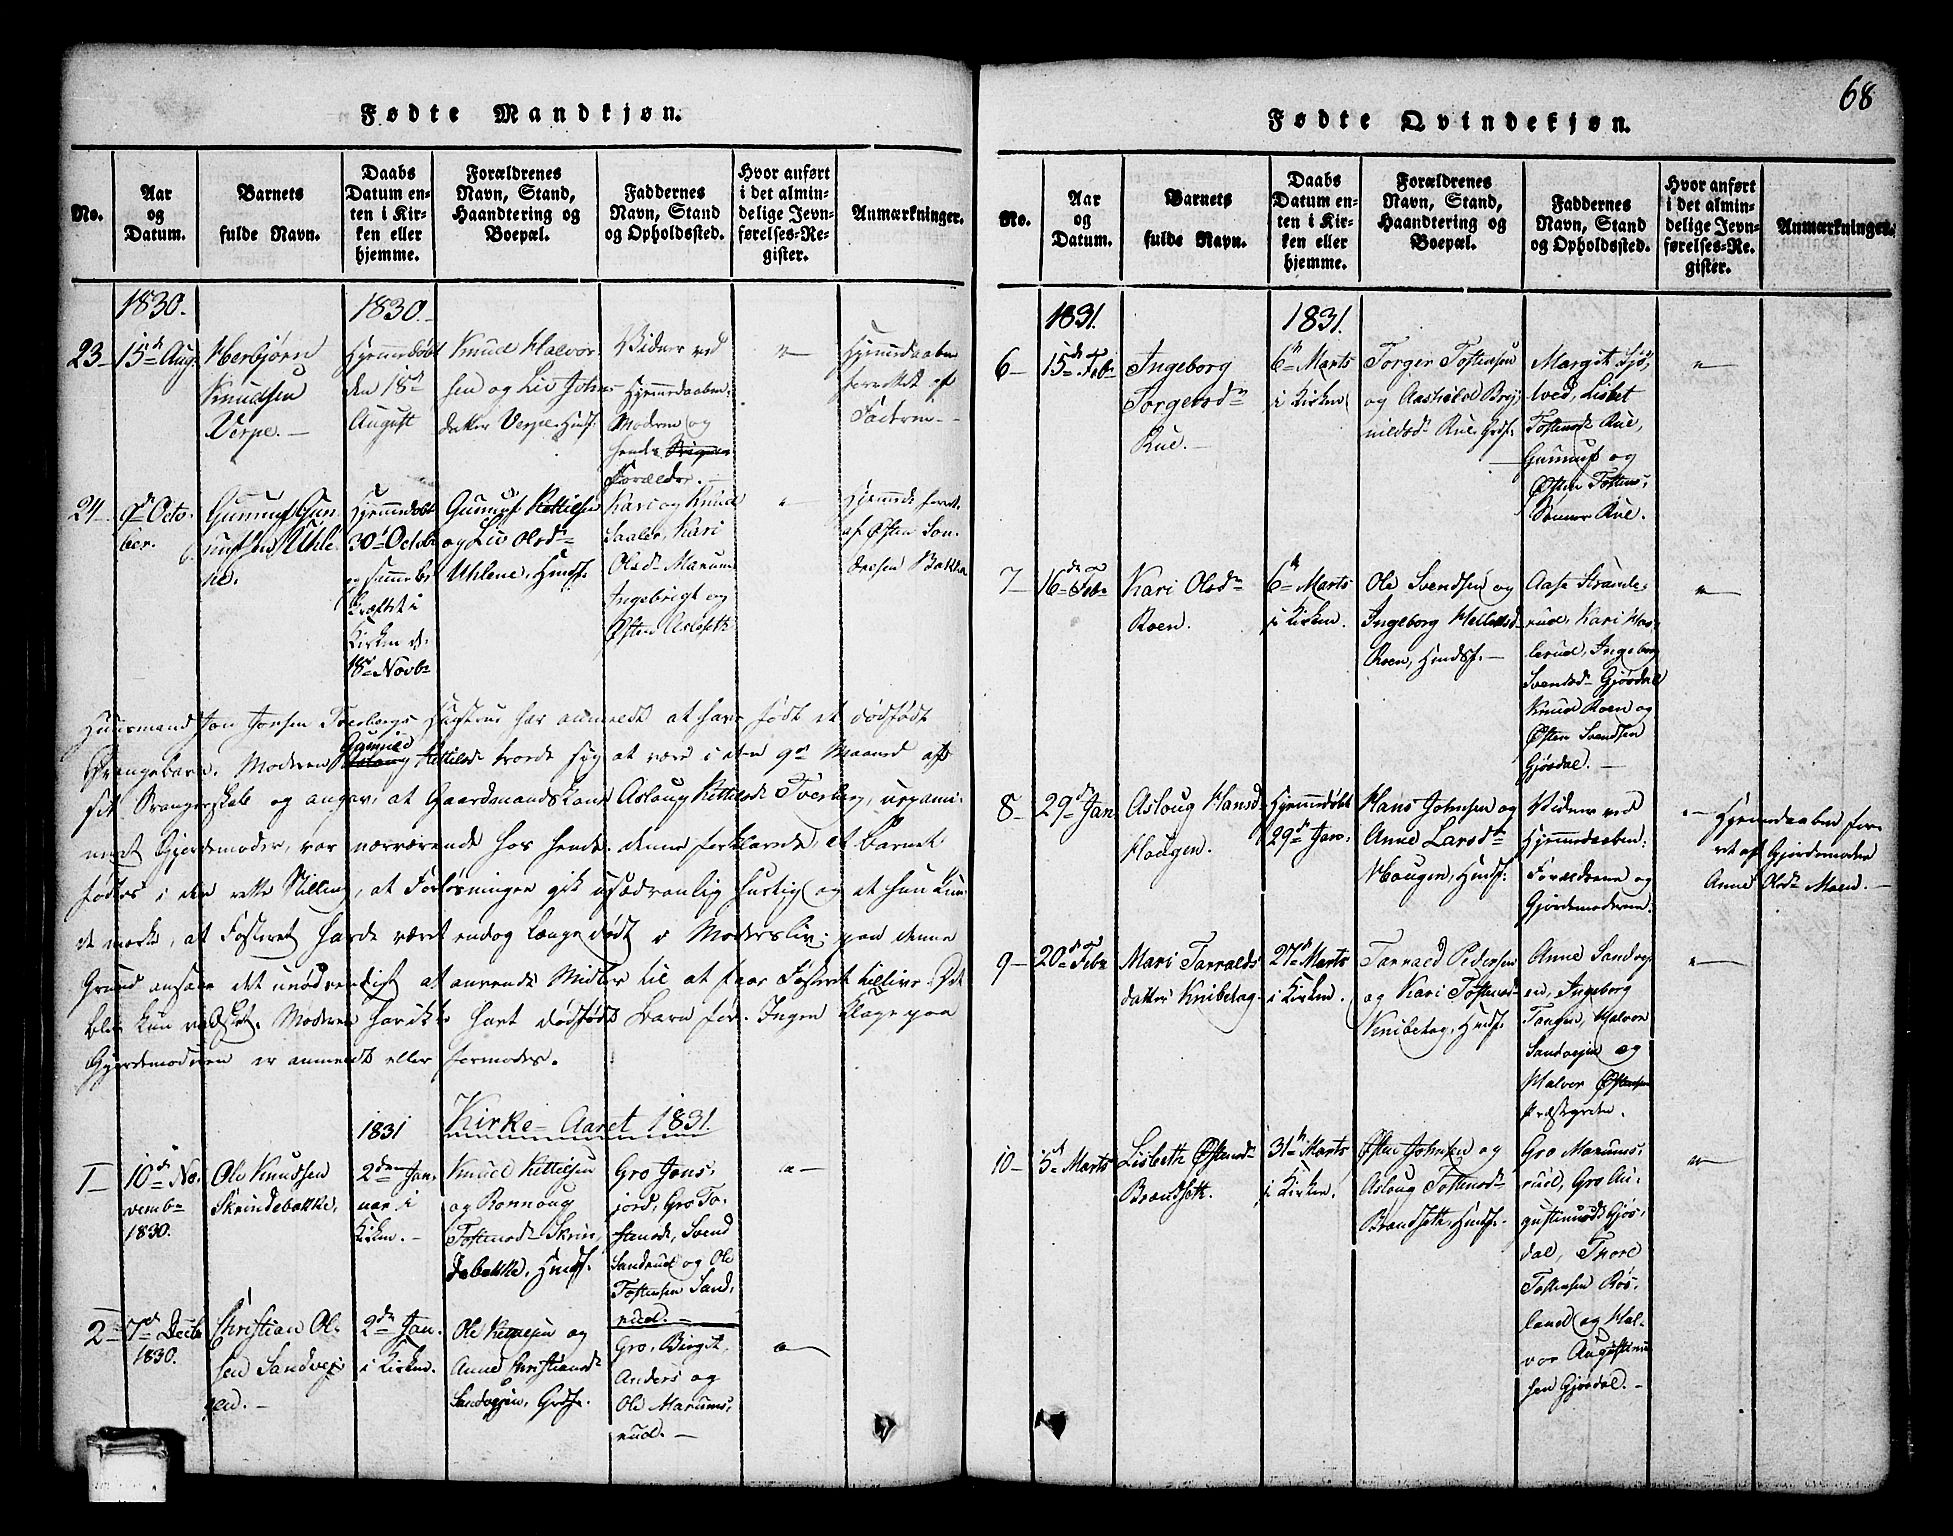 Fødte Mandkjøn.
No.
Aar
og
Datum.
Barnets
fulde Navn.
Daabs
Datum en-
ten i Kir-
ken eller
hjemme.
Forældrenes
Navn, Stand,
Haandtering og
Boepæl.
Faddernes
Navn, Stand
og Opholdssted.
Hvor anført
i det almin-
delige Jevn-
førelses-Re-
gister.
Anmærkninger.
1830.
1830.
23
15de Aug.
Herbjørn
Knudsen
Verpe.
Hjemmedøbt
den 18de
August
Knud Halvor-
sen og Liv Johns-
datter Verpe, Husf.
Vidner ved
Hjemmedaaben:
Moderen og
hendes
Forældre.
Hjemmedaaben
forrettet af
Faderen.
24
9de Octo-
ber.
Gunnuf Gun-
nufsen Uhle-
ne.
Hjemmedøbt
30te Octobr
Kirken d.
18de Novbr
Gunnuf Kittilsen
og Liv Olsdr
Uhlene, Huusf.
Kari og Knud
Saaler, Kari
Olsdr Marum
Ingebrigt og
Østen Aslesets
Hjemmed. forret.
af Østen Son-
dresen Bakke
Huusmand Jon Jonsen Tverbergs Hustrue har anmeldt at have født et dødfødt
Drengebarn. Moderen Gunnild Kittilsdr troede sig at være i den 9de Maaned af
sit Svangerskab og angav, at Gaardmandskone Aslaug Kittilsdr Tverberg, uexami-
neret Gjordemoder, var nærværende hos hende. denne forklarede, at Barnet
fødtes i den rette Stilling, at Forløsningen gik usædvanlig hurtig og at hun kun-
de mærke, at Fosteret havde været endog længe dødt i Modersliv; paa denne
Grund ansaae det unødvendigt at anvende Midler til at faae Fosteret tillive. Det
blev kun vadsket. Moderen har ikke havt dødfødt Barn før. Ingen Klage paa
Gjordemoderen er anmeldt eller formodes.
Kirke-Aaret 1831.
1831
1
10de No-
vembr
1830.
Ole Knudsen
Skrindebakke,
2den Jan-
uar i
Kirken.
Knud Kittilsen
og Ronnoug
Tostensdr Skrin-
debakke, Huusf.
Gro Jons-
jord, Gro To-
stensdr, Svend
Sandrud og Ole
Tostensen Sand-
rud.
2
7de Decbr
1830.
Christian Ol-
sen Sandvej-
gen.
2den Jan.
i Kirken.
Ole Kittilsen og
Anne Christiansdr
Sandvejen, Grdf.
Gro, Birgit,
Anders og
Ole Marums-
rud.
68
Fødte Qvindekjøn.
No.
Aar
og
Datum.
Barnets
fulde Navn.
Daabs
Datum en-
ten i Kir-
ken eller
hjemme.
Forældrenes
Navn, Stand,
Haandtering og
Boepæl.
Faddernes
Navn, Stand
og Opholdssted.
Hvor anført
i det almin-
delige Jevn-
førelses-Re-
gister.
Anmærkninger.
1831.
1831.
6
15de Febr
Ingeborg
Torgersdr
Rue.
6te Marts
i Kirken
Torger Tostensen
og Aashild Bry-
nildsd. Rue, Grdf.
Margit Sjø-
tved, Lisbet
Tostensdr Rue,
Gunnuf og
Østen Tostens-
Sønner Rue.
7
16de Febr
Kari Olsdr
Roen.
6te Marts
i Kirken.
Ole Svendsen og
Ingeborg Helleksd.
Roen, Huusf.
Aase Strande-
rud, Kari Has-
lerud, Ingeborg
Svendsdr Gjøsdal
Knud Roen og
Østen Svendsen
Gjøsdal.
8
29de Jan
Asloug Hansd.
Hougen.
Hjemmedøbt
29de Jan.
Hans Johnsen og
Anne Larsdr
Hougen, Huusf.
Vidner ved
Hjemmedaaben:
Forældrene og
Gjordemoderen.
Hjemmedaaben for-
ret. af Gjordemoder
Anne Olsdr Moen.
9
20de Febr
Mari Tarralds-
datter Knibetag.
27de Marts
i Kirken.
Tarrald Pedersen
og Kari Tostensdr
Knibetag, Huusf.
Anne Sandvej-
en, Ingeborg
Tangen, Halvor
Sandvejen og
Halvor Østensen
10
5te Marts
Lisbeth Østensdr
Brandseth.
31te Marts
i Kirken.
Østen Johnsen og
Asloug Tostensdr
Brandseth, Huusf.
Gro Marums-
rud, Gro Au-
gustinusdr Gjøs-
dal, Thore
Tostensen Røs-
land og Hal-
vor Augustinu-
sen Gjøsdal.